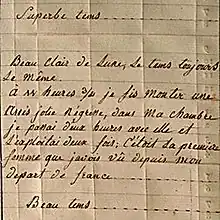 Superbe tems
Beau Clair de Lune, Le tems toujours
Le même.
à heures je fis monter une
très jolie Négrine, dans ma chambre
je passai deux heures avec elle et
L'exploitai deux fois; C'étoit La premiere
femme que j'avois vû depuis mon
depart de france
Beau tems